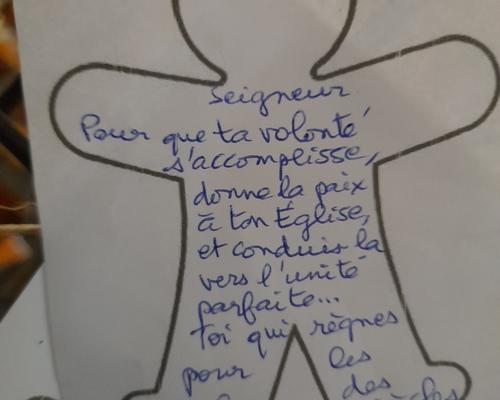 Seigneur
Pour que ta volonté
s'accomplisse,
donne la paix
à ton Église,
et conduis la
vers l'unité
parfaite...
Toi qui règnes
pour les
des